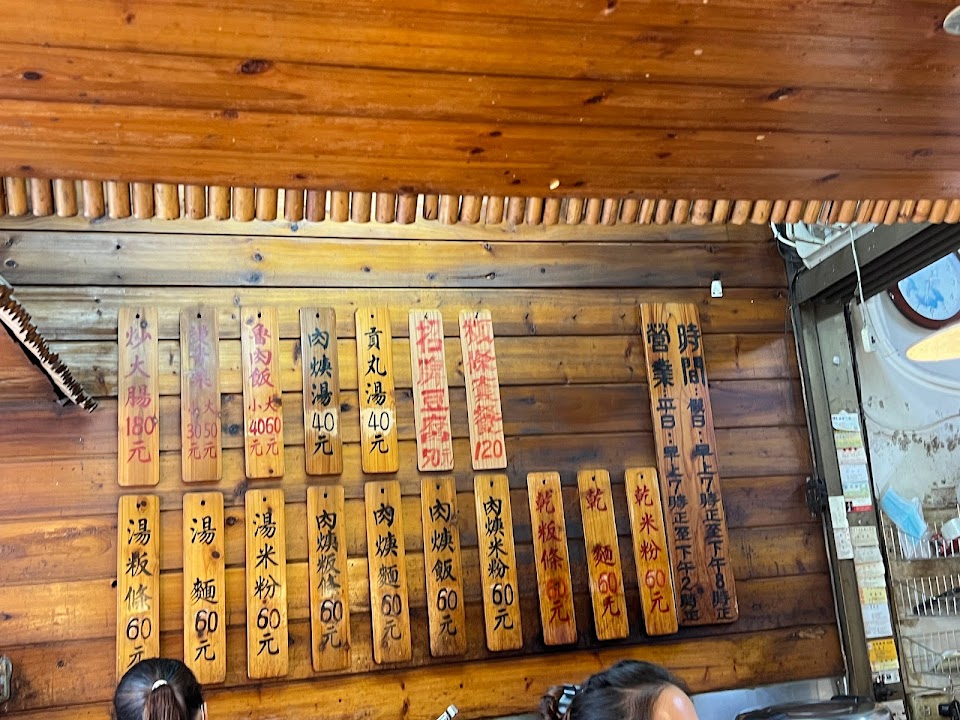 炒大腸180元
小30元
大50元
魯肉飯
小40元
大60元
肉焿湯40元
貢丸湯40元
招牌豆腐50元
粄條套餐120
湯粄條60元
湯麵60元
湯米粉60元
肉焿粄條60元
肉焿麵60元
肉焿飯60元
肉焿米粉60元
乾粄條60元
乾麵60元
乾米粉60元
營業時間
平日:早上7時正至下午2時正
假日:早上7時正至下午8時正